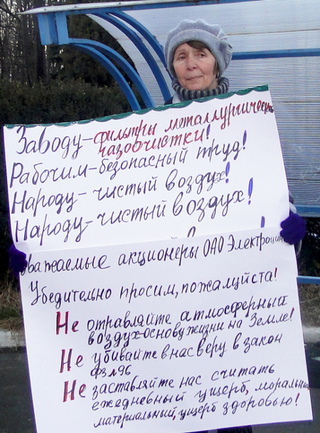 Заводу-фильтры металлургической
газоочистки!
Рабочим-безопасный труд!
Народу-чистый воздух!
Народу-чистый воздух!
Уважаемые акционеры ОАО Электроцинк
Убедительно просим, пожалуйста!
Не отравляйте атмосферный
воздух-основу жизни на Земле!
Не убивайте в нас веру в закон
фз №96
Не заставляйте нас считать
ежедневный ущерб, моральный
материальный, ущерб здоровью!